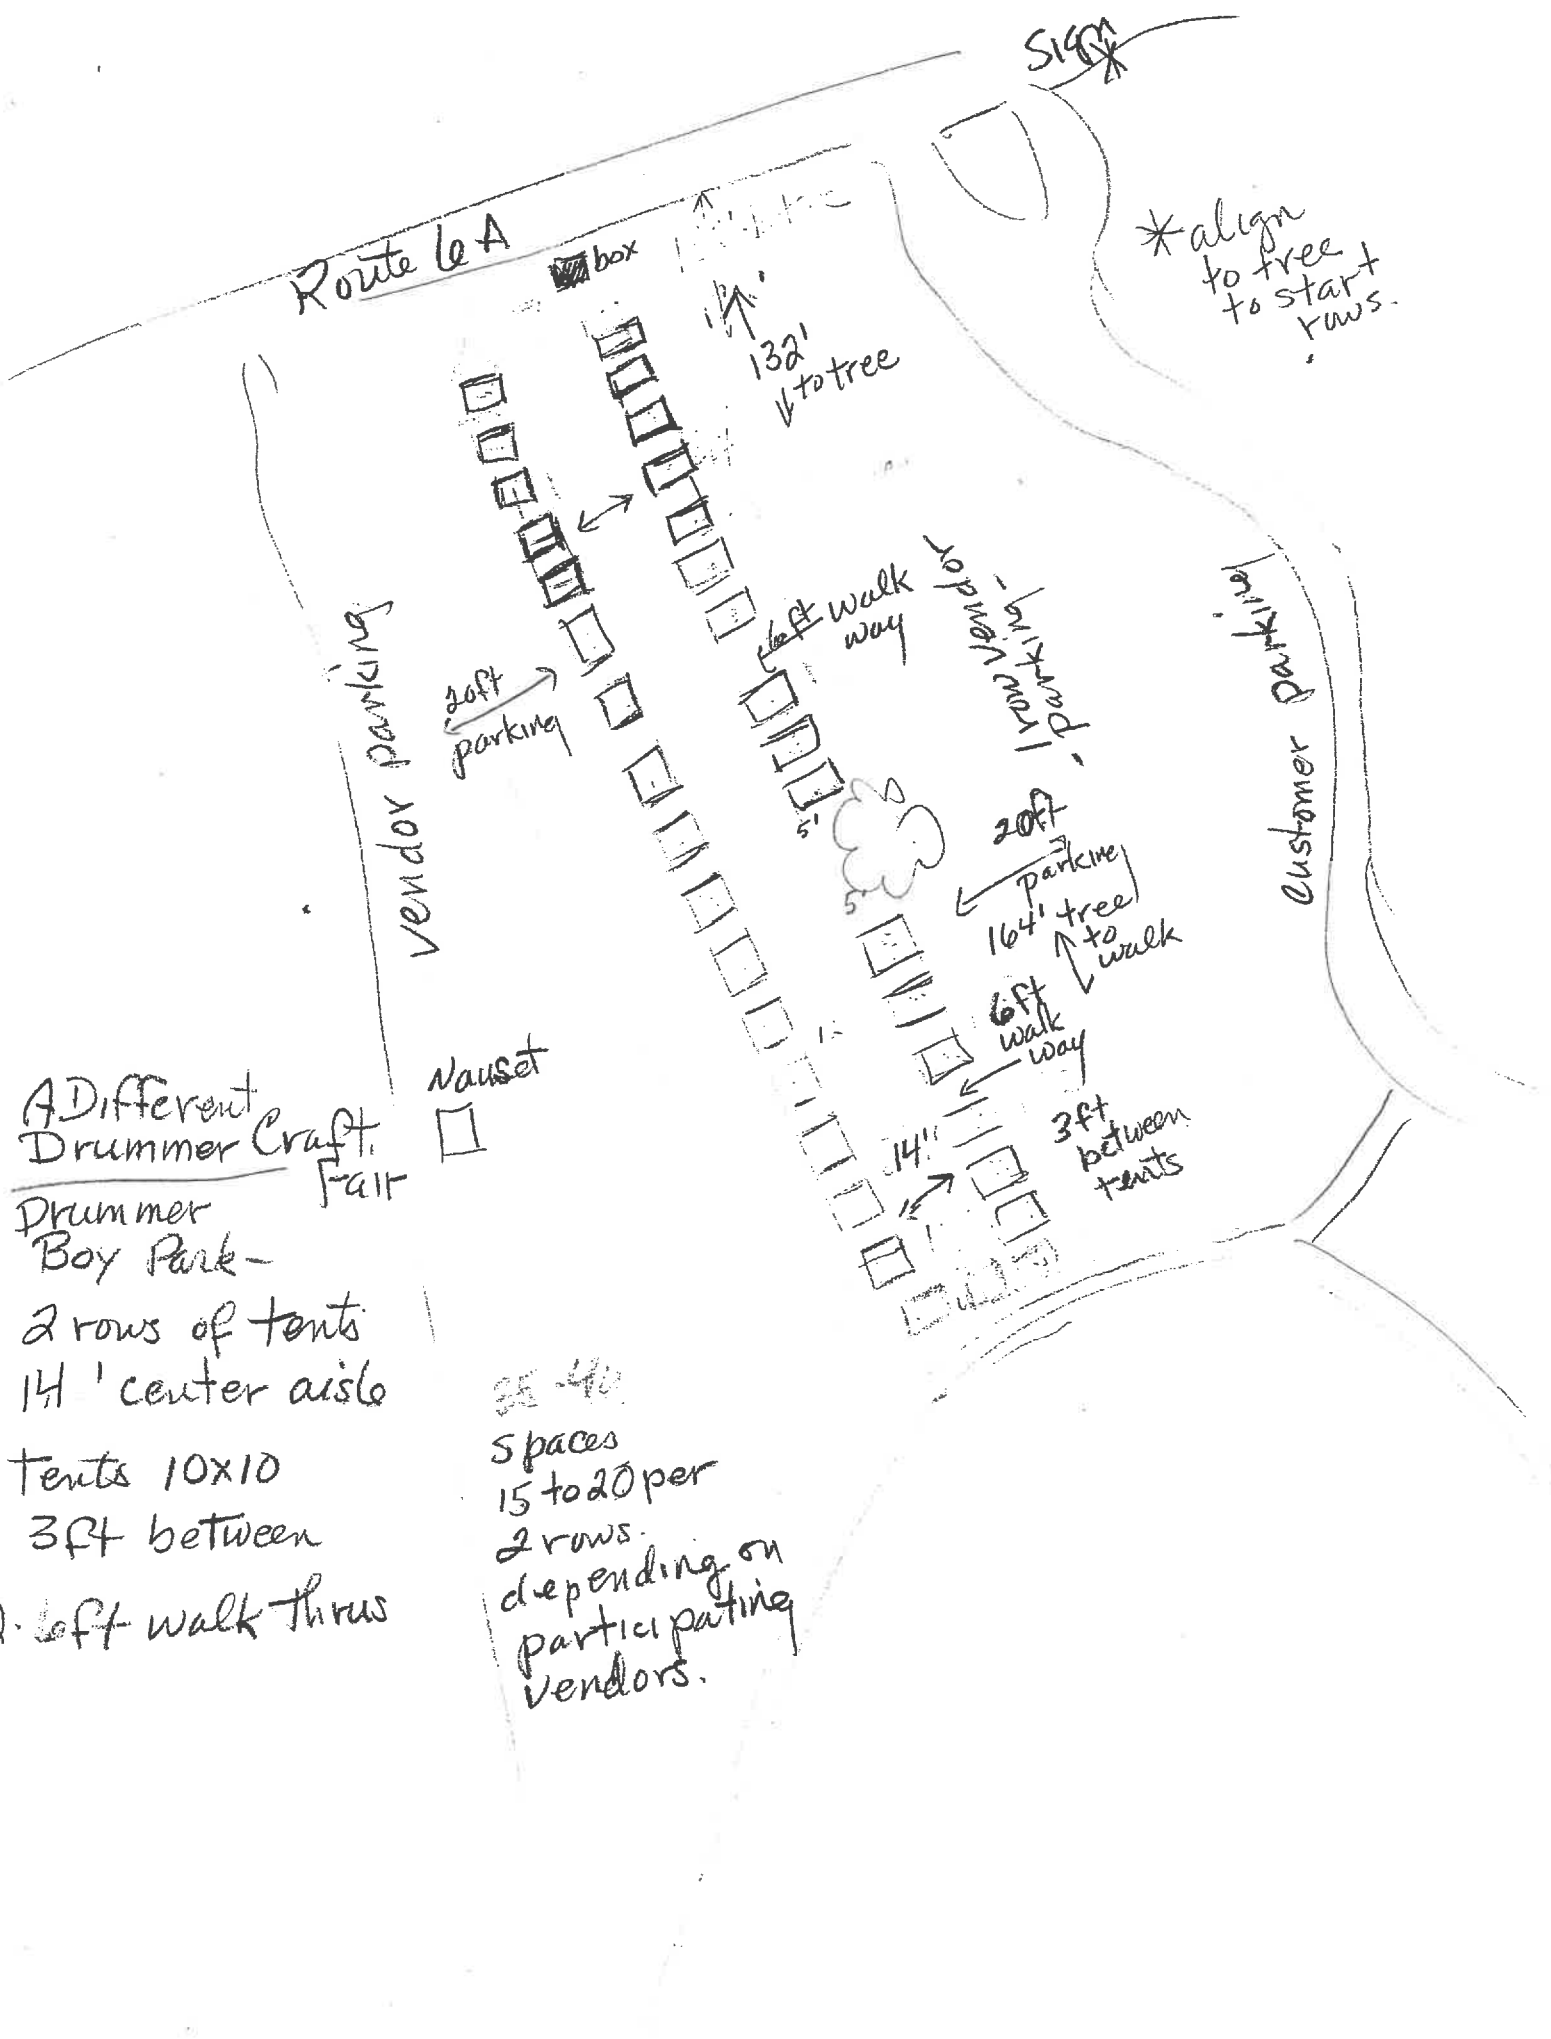 Sign
Route 6A
box
*align
to tree
to start
rows.
132'
to tree
6ft walk
way
1 row vendor
- parking -
Customer parking
vendor parking
20ft
parking
5'
5'
20ft
parking
164' tree
to
walk
6ft
walk
way
3ft
between
tents
14'
Nauset
A Different
Drummer Craft
Fair
Drummer
Boy Park -
2 rows of tents
14' center aisle
Tents 10x10
3ft between
6ft walk thrus
spaces
15 to 20 per
2 rows.
depending on
participating
vendors.